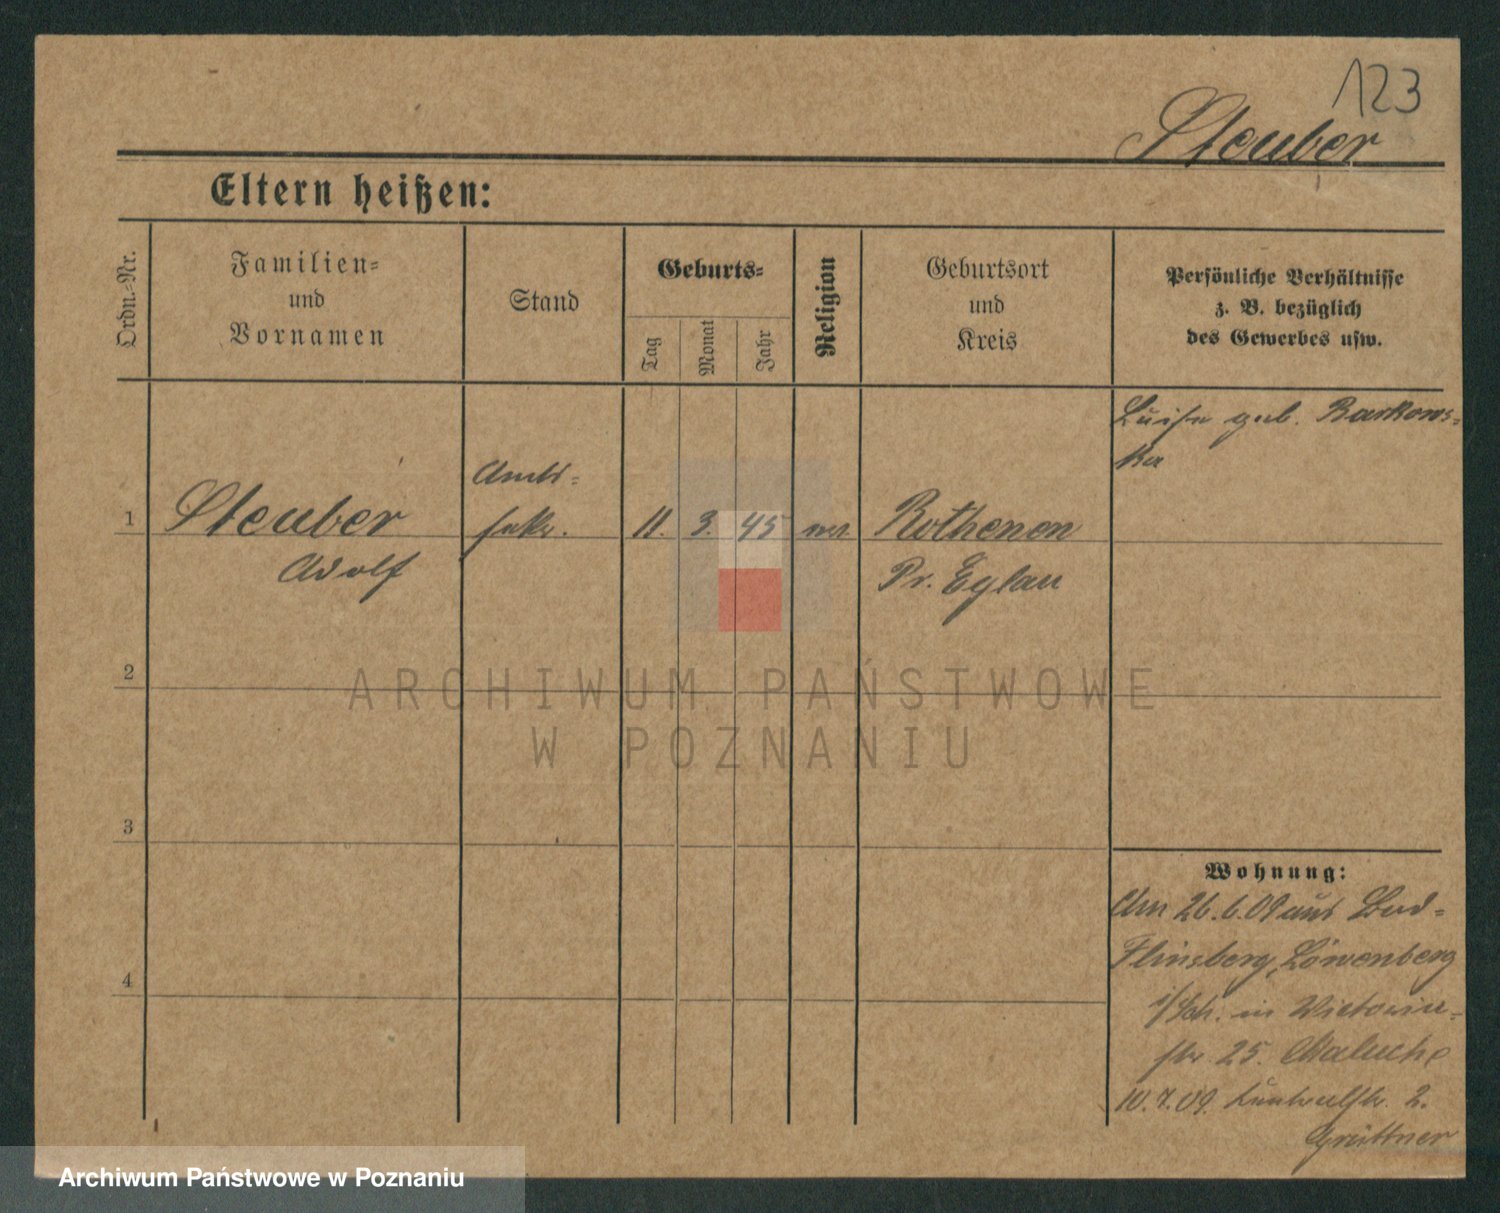 123
Steuber
Eltern heißen:
Ordn.-Nr.
Familien-
und
Vornamen
Stand
Geburts-
Tag
Monat
Jahr
Religion
Geburtsort
und
Kreis
Persönliche Verhältnisse
z. B. bezüglich
des Gewerbes usw.
Luise geb. Barkows-
ka
1
Steuber
Adolf
Amts-
sekr.
11. 3. 45
Rothenen
Pr. Eylau
2
3
4
Wohnung:
Am 26.6.09 aus Bad-
Flinsberg, Löwenberg
i/Sch. in Victoria-
str. 25.
10.7.09. 2.
Grüttner
ARCHIWUM PAŃSTWOWE
W POZNANIU
Archiwum Państwowe w Poznaniu